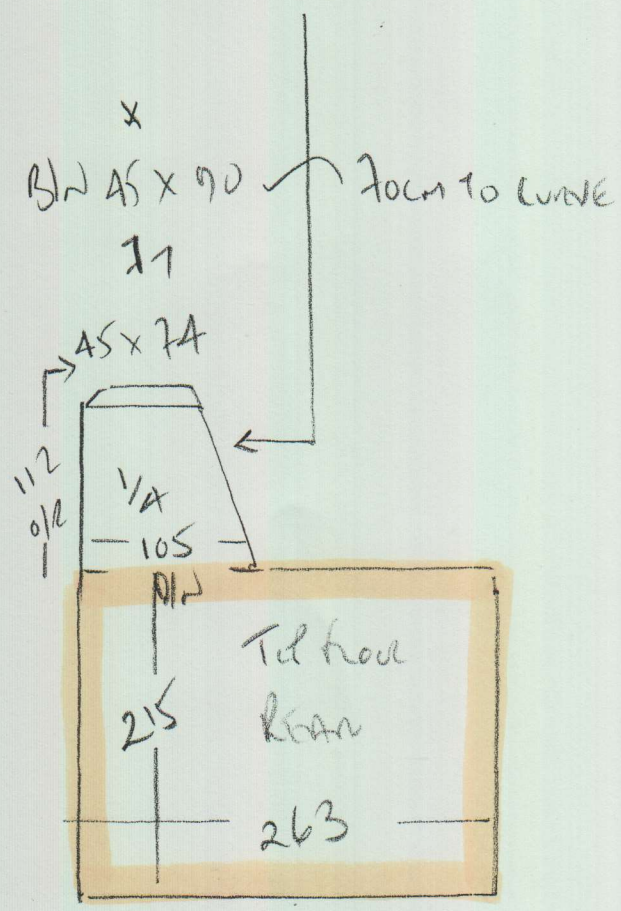 x
B/W 45 x 90
70cm to curve
71
45 x 74
112
O/R
1/4
105
D/W
Top floor
Rear
215
263